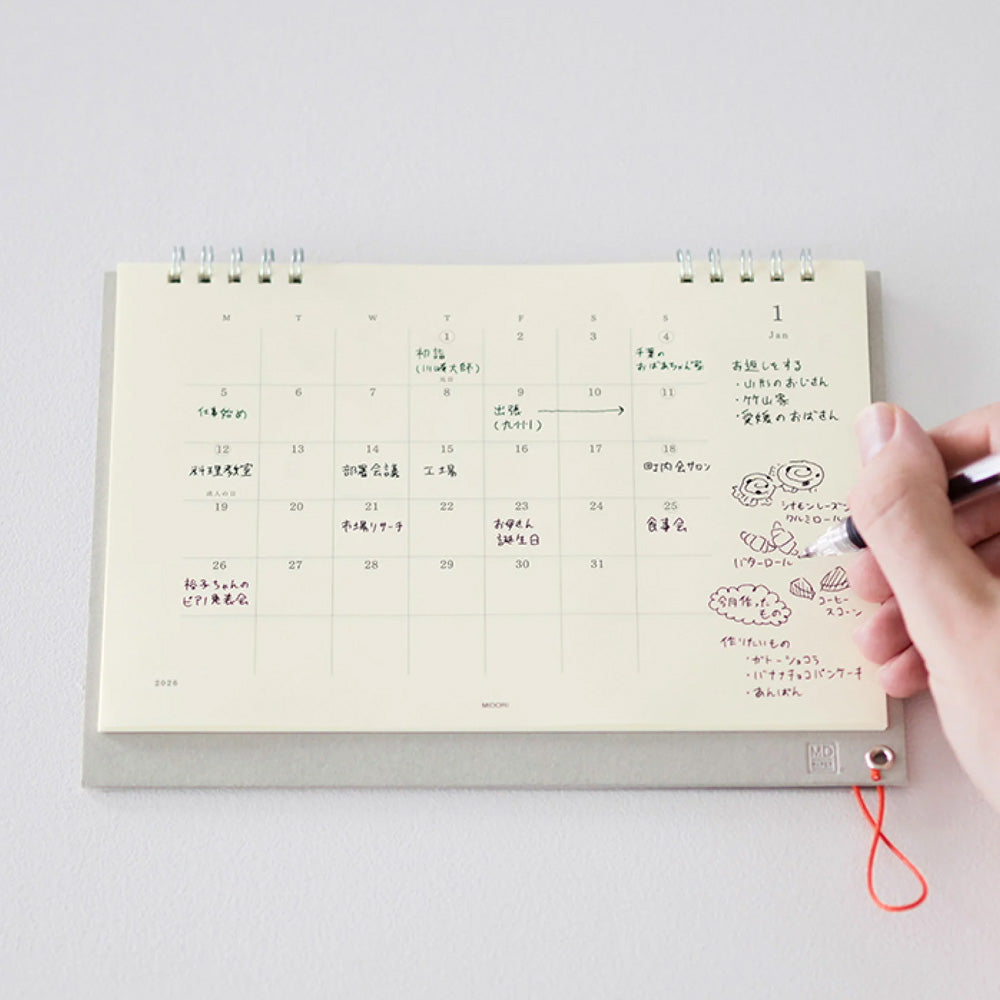 1
Jan
M T W T F S S
1 2 3 4
初詣
(川崎大師)
元日
千葉の
おばあちゃん家
5 6 7 8 9 10 11
仕事始め
出張
(九州)
12 13 14 15 16 17 18
料理教室
成人の日
部署会議
工場
町内会サロン
19 20 21 22 23 24 25
市場リサーチ
お母さん
誕生日
食事会
26 27 28 29 30 31
裕子ちゃんの
ピアノ発表会
2026
MIDORI
お返しをする
・山形のおじさん
・竹山家
・愛媛のおばさん
シナモンレーズン
クルミロール
バターロール
コーヒー
スコーン
今月作った
もの
作りたいもの
・ガトーショコラ
・バナナチョコパンケーキ
・あんぱん
MD